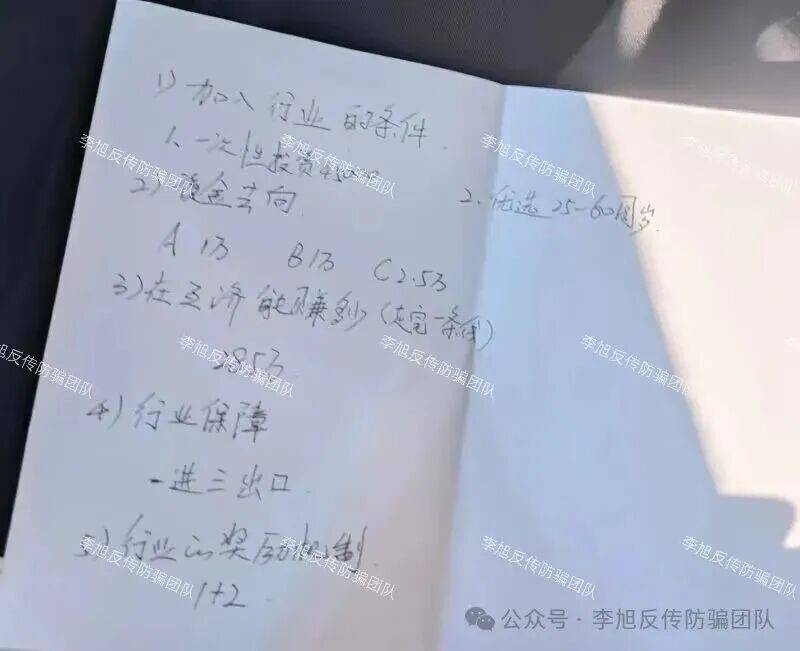 1) 加入行业的条件.
1、一次性投资45000
2、优选25-60周岁.
2) 资金去向
A 1万 B 1万 C 2.5万
3) 在互济能赚多少(走完一条线)
28.5万
4) 行业保障
一进三出口.
5) 行业的奖励机制.
1+2
李旭反传防骗团队
李旭反传防骗团队
李旭反传防骗团队
李旭反传防骗团队
李旭反传防骗团队
李旭反传防骗团队
李旭反传防骗团队
李旭反传防骗团队
李旭反传防骗团队
李旭反传防骗团队
李旭反传防骗团队
公众号·李旭反传防骗团队